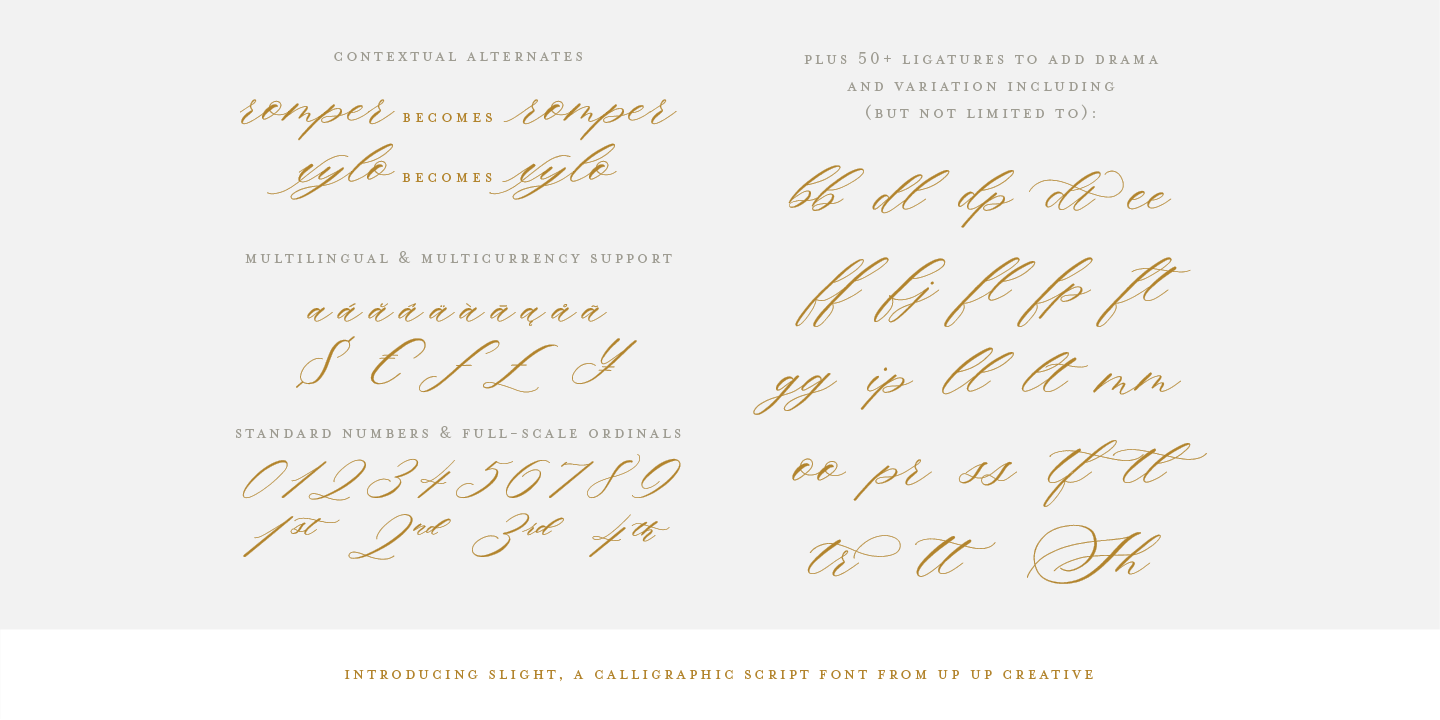 CONTEXTUAL ALTERNATES
romper BECOMES romper
vylo BECOMES vylo
MULTILINGUAL & MULTICURRENCY SUPPORT
a á ă â ä à ā ą å ã
$ € ƒ £ ¥
STANDARD NUMBERS & FULL-SCALE ORDINALS
0 1 2 3 4 5 6 7 8 9
1st 2nd 3rd 4th
PLUS 50+ LIGATURES TO ADD DRAMA
AND VARIATION INCLUDING
(BUT NOT LIMITED TO):
bb dl dp dt ee
ff fj fl fp ft
gg ip ll lt mm
oo pr ss tf tl
tr tt Th
INTRODUCING SLIGHT, A CALLIGRAPHIC SCRIPT FONT FROM UP UP CREATIVE